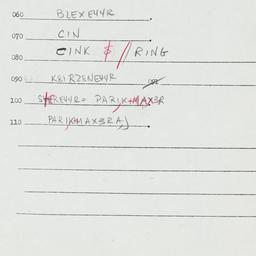 060 BLEXE44R.
070 CIN
080 CINK $ // RING
090 KRIRZENE44R
100 SHERE44R= PARIK+MAX3R
110 PARIK+MAX3RAJ.